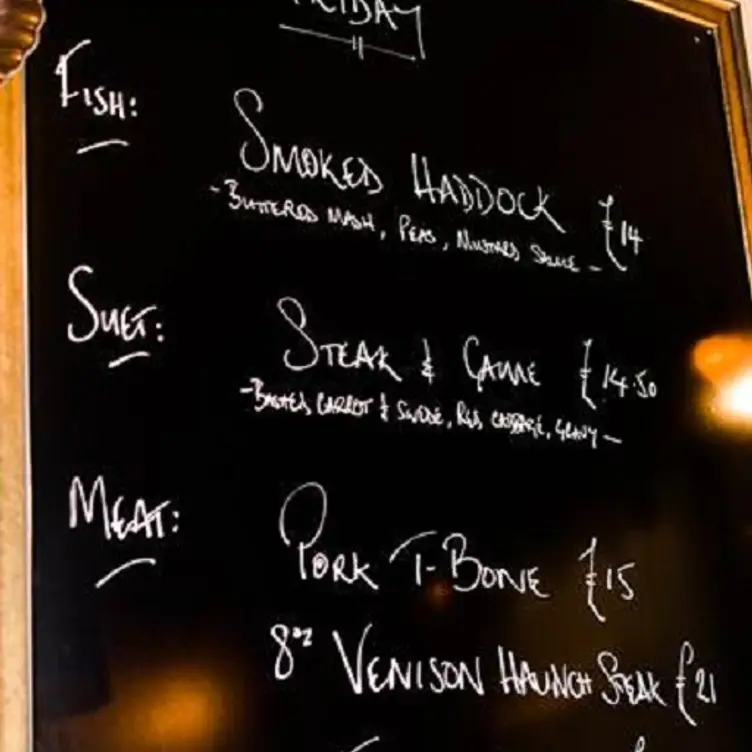 FRIDAY
FISH:
SMOKED HADDOCK £14
- BUTTERED MASH, PEAS, MUSTARD SAUCE -
SUET:
STEAK & GAME £14.50
CARROT & SWEDE, RED CABBAGE, GRAVY -
MEAT:
PORK T-BONE £15
8oz VENISON HAUNCH STEAK £21